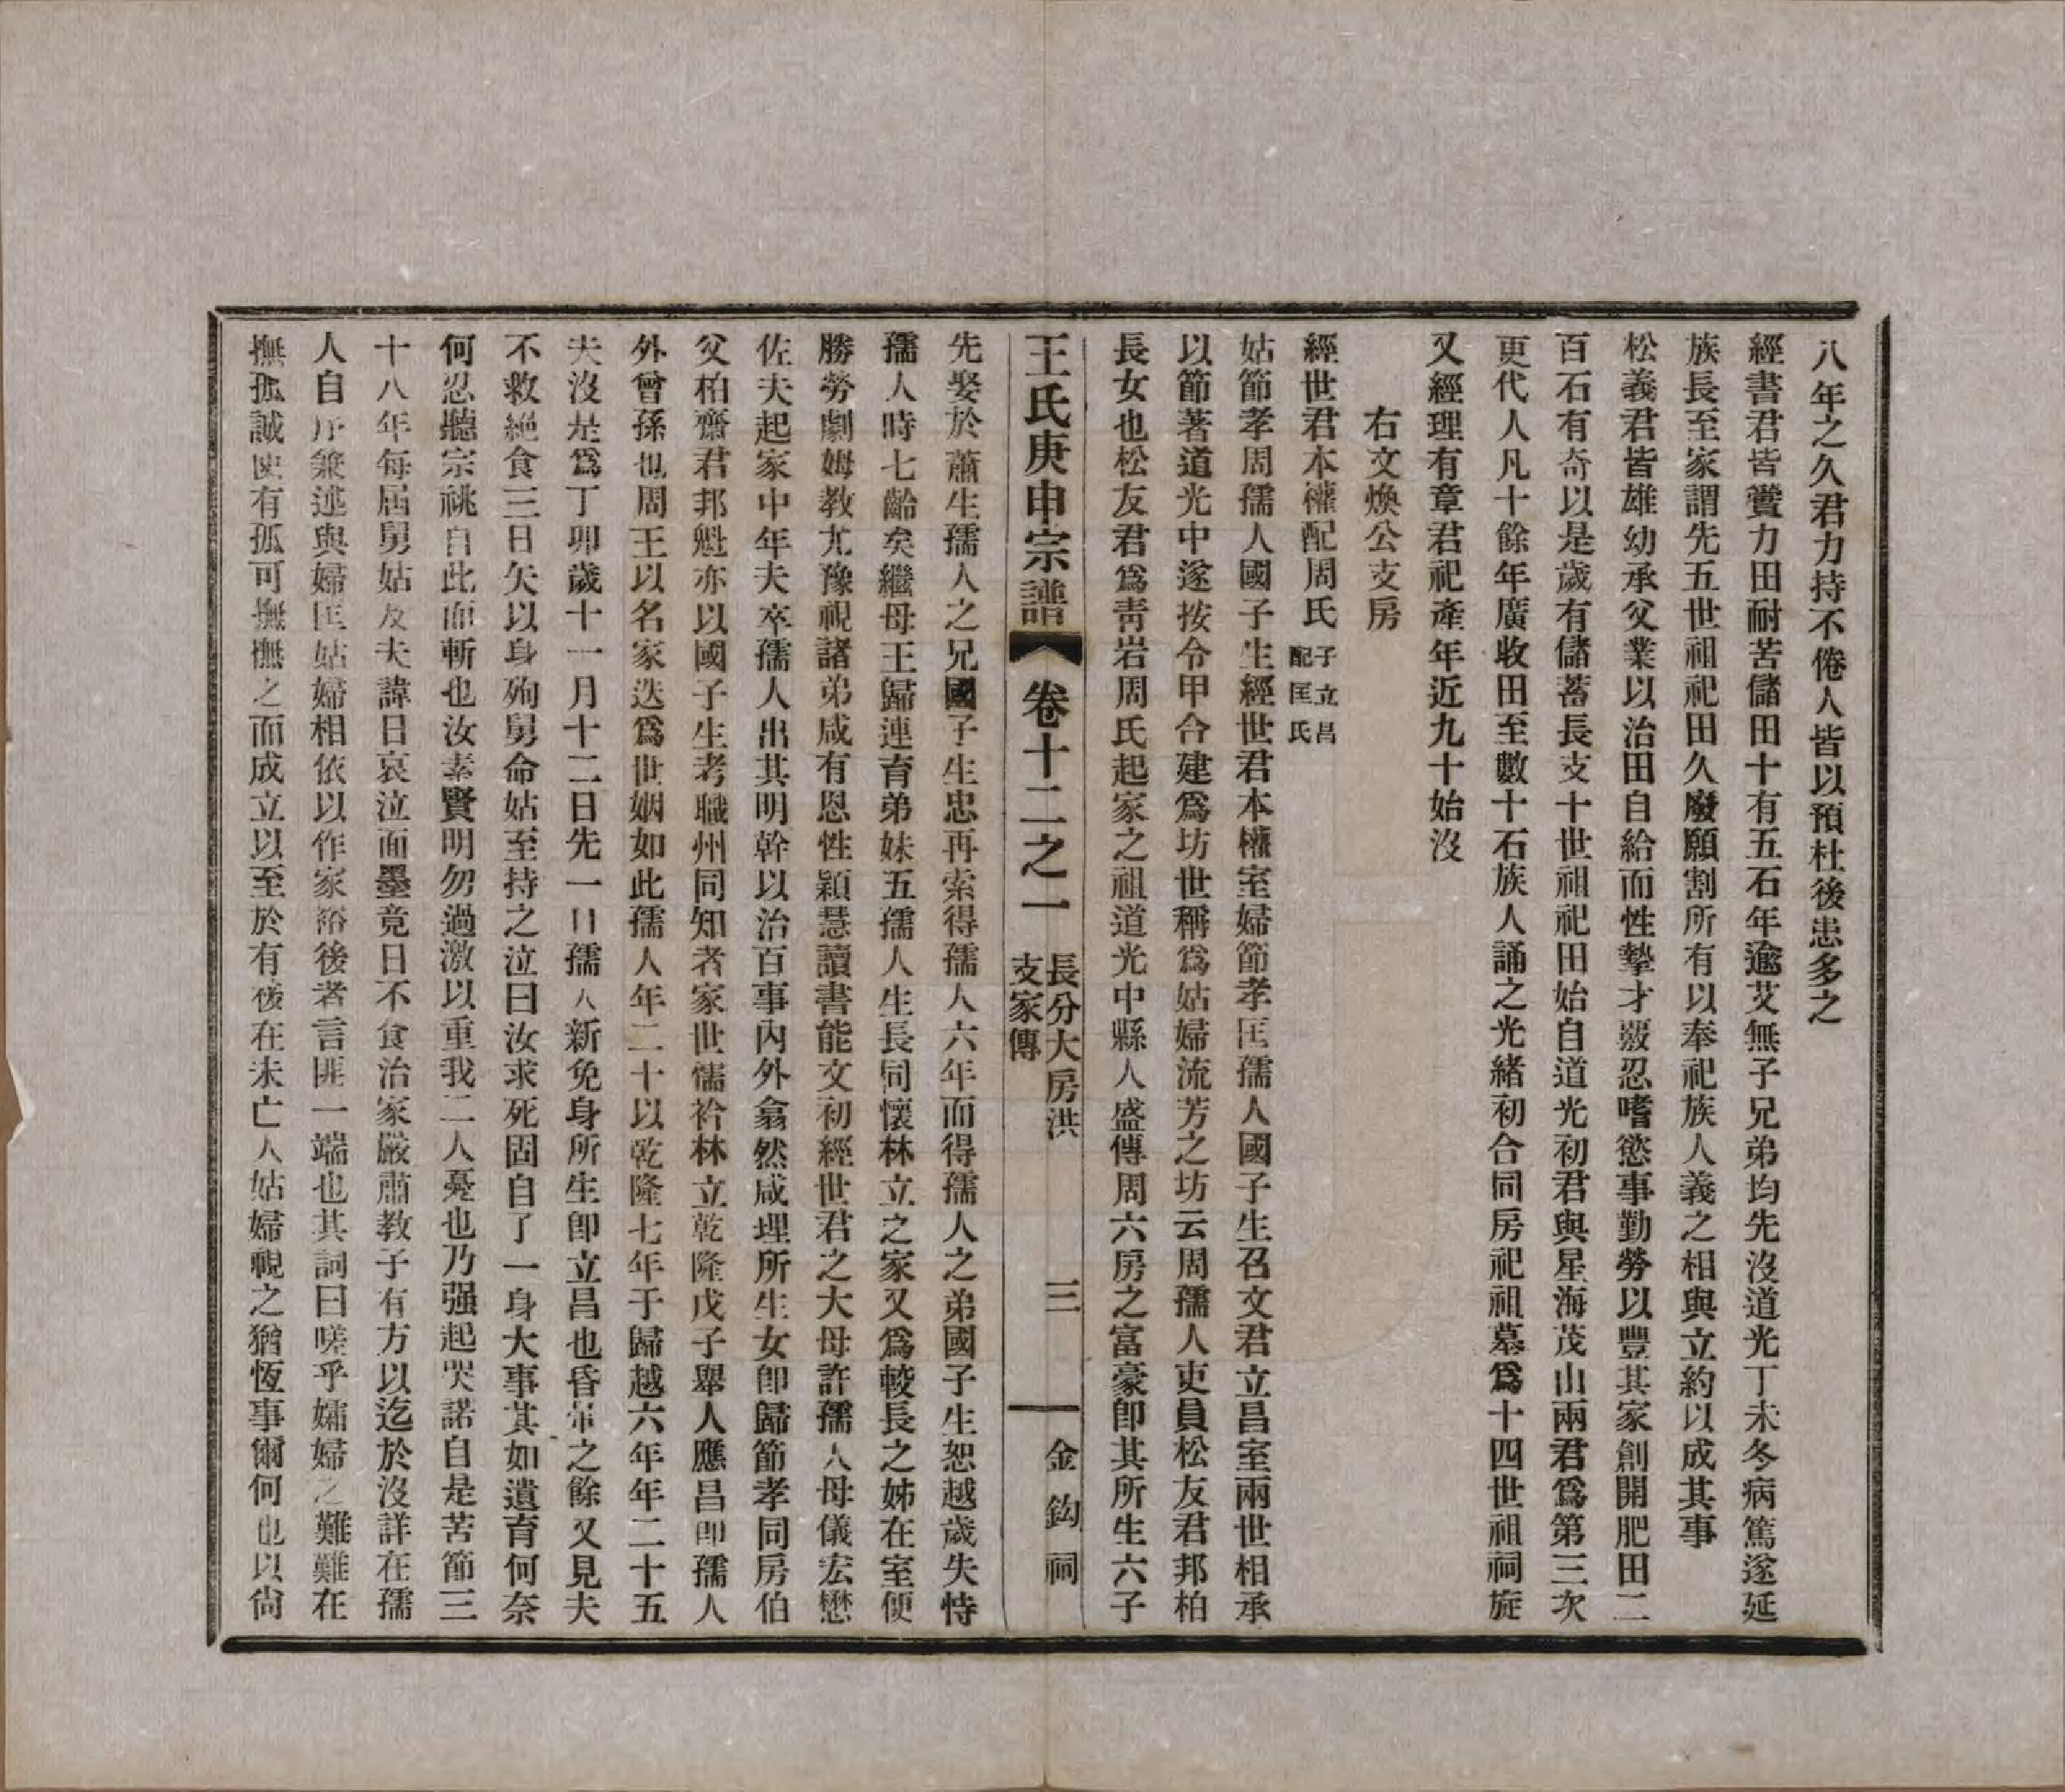 八年之久君力持不倦人皆以預杜後患多之
經書君皆賫力田耐苦儲田十有五石年逾艾無子兄弟均先沒道光丁未冬病篤遂延
族長至家謂先五世祖祀田久廢願割所有以奉祀族人義之相與立約以成其事
松義君皆雄幼承父業以治田自給而性摯才覈忍嗜慾事勤勞以豐其家創開肥田二
百石有奇以是歲有儲蓄長支十世祖祀田始自道光初君與星海茂山兩君爲第三次
更代人凡十餘年廣收田至數十石族人誦之光緒初合同房祀祖墓爲十四世祖祠旋
又經理有章君祀產年近九十始沒
右文煥公支房
經世君本權配周氏子立昌配匡氏
姑節孝周孺人國子生經世君本權室婦節孝匡孺人國子生召文君立昌室兩世相承
以節著道光中遂按令甲合建爲坊世稱爲姑婦流芳之坊云周孺人吏員松友君邦柏
長女也松友君爲靑岩周氏起家之祖道光中縣人盛傳周六房之富豪卽其所生六子
王氏庚申宗譜 卷十二之一 長分大房洪支家傳 三 金鈎祠
先娶於蕭生孺人之兄國子生忠再索得孺人六年而得孺人之弟國子生恕越歲失恃
孺人時七齡矣繼母王歸連育弟妹五孺人生長同懷林立之家又爲較長之姊在室便
勝勞劇姆教尤豫視諸弟咸有恩性穎慧讀書能文初經世君之大母許孺人母儀宏懋
佐夫起家中年夫卒孺人出其明幹以治百事內外翕然咸理所生女卽歸節孝同房伯
父柏齋君邦魁亦以國子生考職州同知者家世儒衿林立乾隆戊子舉人應昌卽孺人
外曾孫也周王以名家迭爲世姻如此孺人年二十以乾隆七年于歸越六年年二十五
夫沒是爲丁卯歲十一月十二日先一日孺人新免身所生卽立昌也昏帘之餘又見夫
不救絕食三日矢以身殉舅命姑至持之泣曰汝求死固自了一身大事其如遺育何奈
何忍聽宗祧自此而斬也汝素賢明勿過激以重我二人憂也乃强起哭諾自是苦節三
十八年每屆舅姑及夫諱日哀泣面墨竟日不食治家嚴肅教子有方以迄於沒詳在孺
人自序兼述與婦匡姑婦相依以作家裕後者言匪一端也其詞曰嗟乎孀婦之難難在
撫孤誠使有孤可撫撫之而成立以至於有後在未亡人姑婦視之猶恆事爾何也以尙